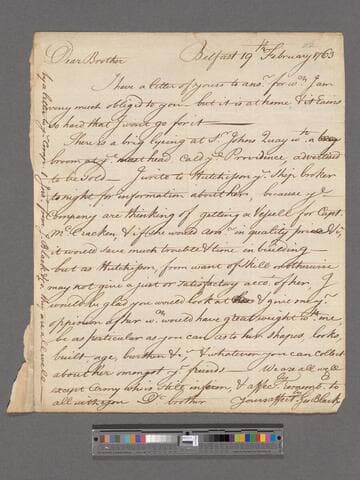 Dear Brother Belfast 19th February 1763
I have a letter of yours to ansr. for wch. I am
very much obliged to you but it is at home & it rains
so hard that I can't go for it
There is a brig lyeing at Sr. Johns Quay wth. a
broom at ye mast head, calld ye Providence, advertised
to be sold I write to Hutchison ye Ship broker
to night for information about her, because ye
Company are thinking of getting a Vessell for Capt.
McCracken, & if she would ansr. in quality price & c
it would save much trouble & time in building
but as Hutchison, from want of skill or otherwise
may not give a just or satisfactory acct. of her. I
would be glad you would look at her & give me yr.
oppinion of her wch. would have great weight wth. me,
be as particular as you can as to her shapes, looks,
built, age, burthen & c & whatever you can collect
about her amongst yr friends We are all well
except Tammy who is still in town, & affecty. rememb. to
all with you Dr. brother Yours affectly Geo Black